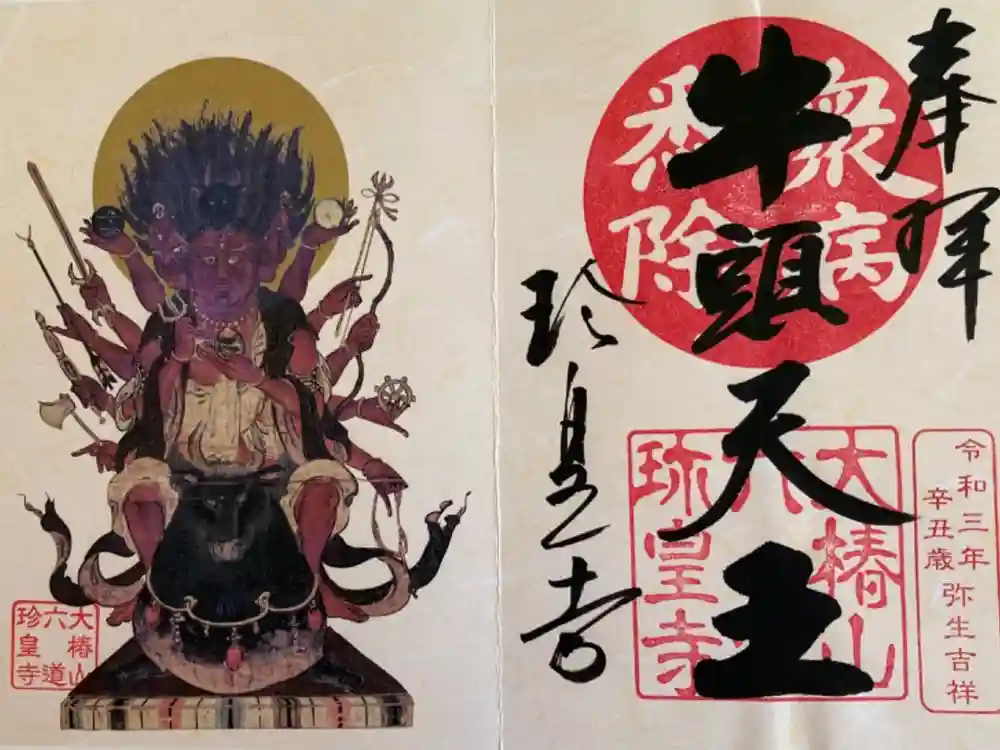 奉拝
衆病
悉除
牛頭天王
珍皇寺
大椿山
六道
珍皇寺
令和三年
辛丑歳
弥生吉祥
大椿山
六道
珍皇寺